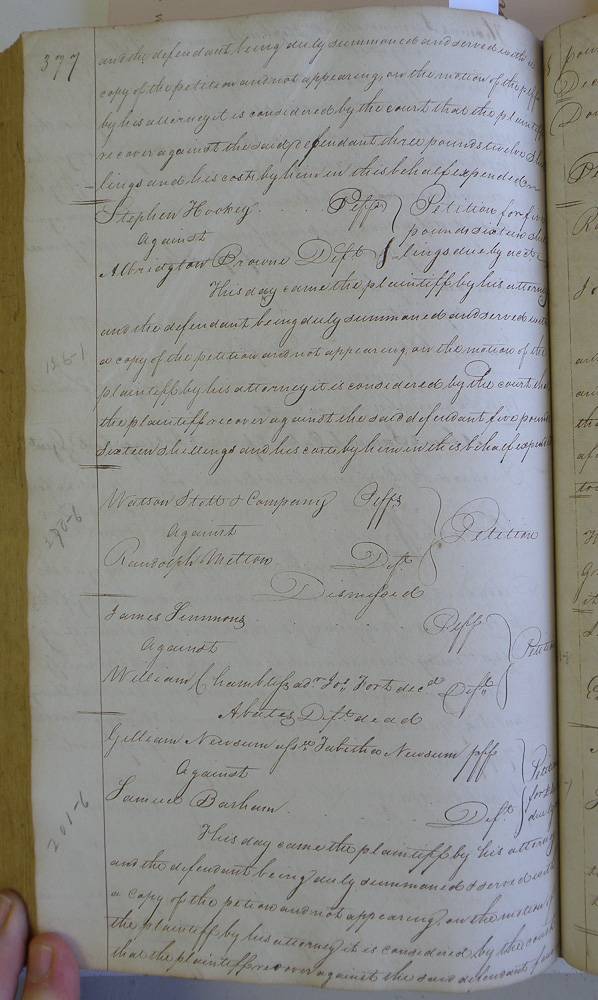 377
and the defendant being duly summoned and served with a
copy of the petition and not appearing, on the motion of the plff
by his attorney it is considered by the court that the plaintiff
recover against the said defendant three pounds twelve shil
lings and his costs by him in this behalf expended
Stephen Hockey Plff Petition for five
Against pounds sixteen shil
Albridgton Browne Deft lings due by acct
This day came the plaintiff by his attorney
and the defendant being duly summoned and served with
a copy of the petition and not appearing, on the motion of the
plaintiff by his attorney it is considered by the court that
the plaintiff recover against the said defendant five pounds
sixteen shillings and his costs by him in this behalf expended
Watson Stott & Company Plffs
Against Petition
Randolph Mitton Deft
Dismissed
James Simmons Plff
Against Petition
William Chambliss adr Jos. Fort decd Deft
Abates Deft dead
Gilliam Newsum assee Tabitha Newsum plff
Against
Samuel Barham Deft
This day came the plaintiff by his attorney
and the defendant being duly summoned & served with
a copy of the petion and not appearing, on the motion of
the plaintiff by his attorney it is considered by the court
that the plaintiff recover against the said defendant